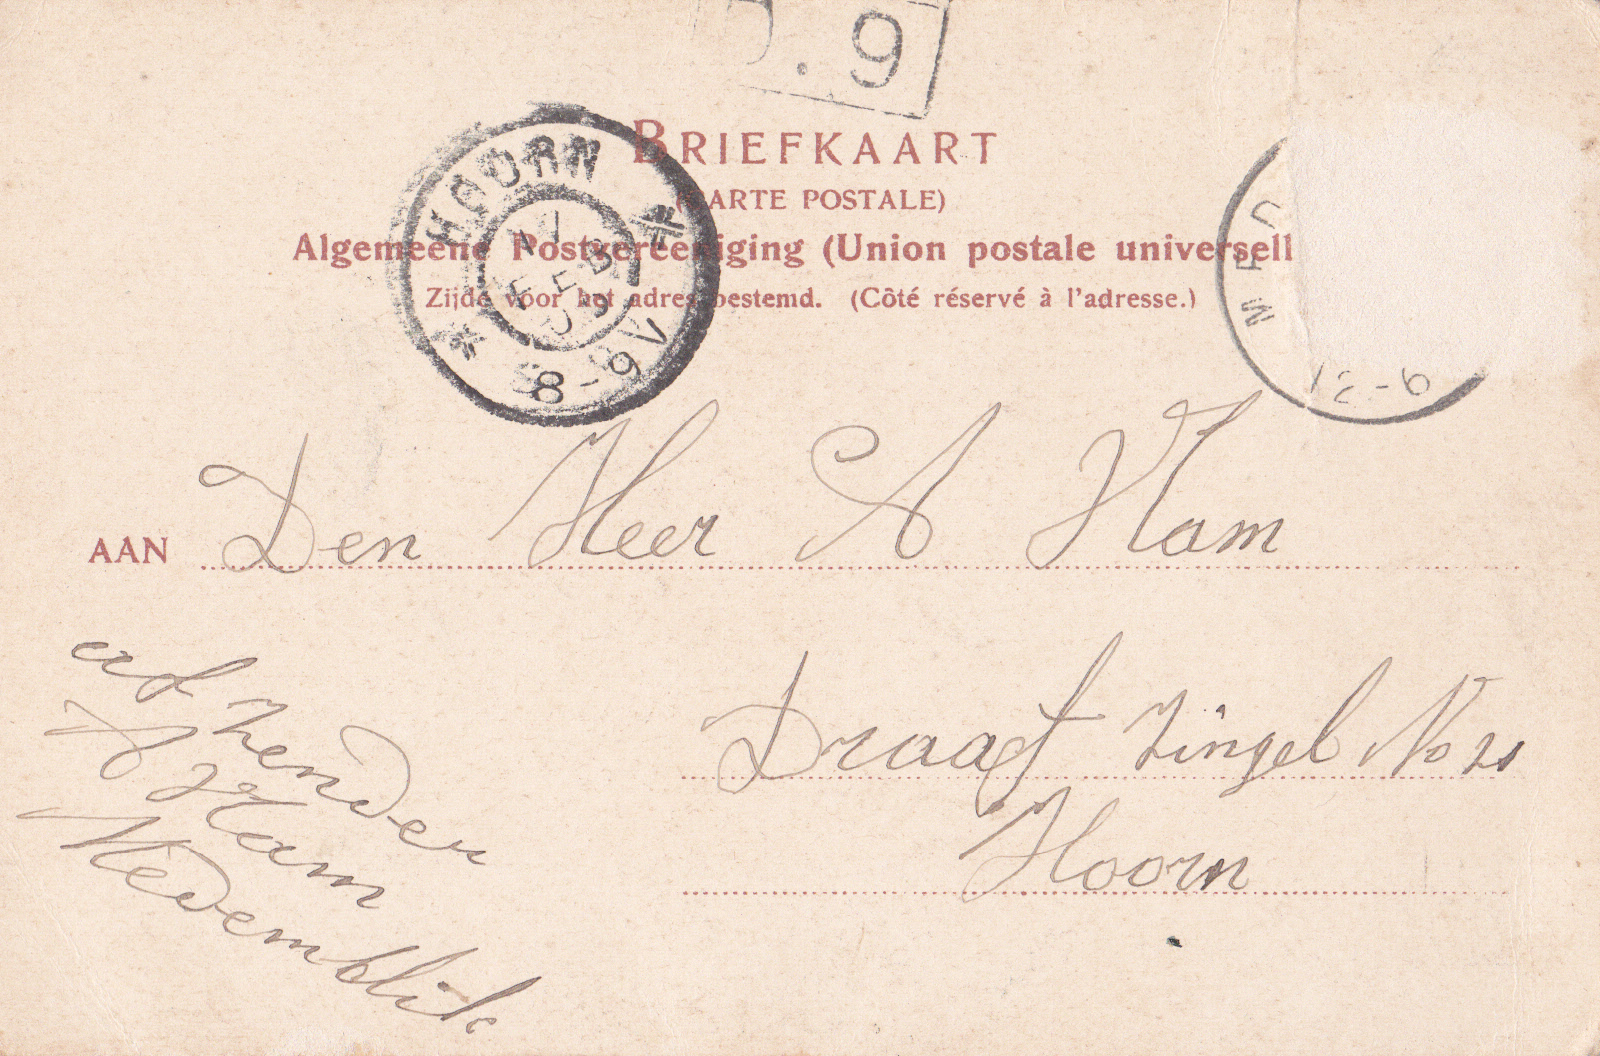 . 9
BRIEFKAART
(CARTE POSTALE)
Algemeene Postvereeniging (Union postale universell
Zijde voor het adres bestemd. (Côté réservé à l'adresse.)
HOORN
FEB
8-9V
MED
12-6
AAN Den Heer A Ham
Draaf Zingel No 21
Hoorn
afzender
A Ham
Medemblik